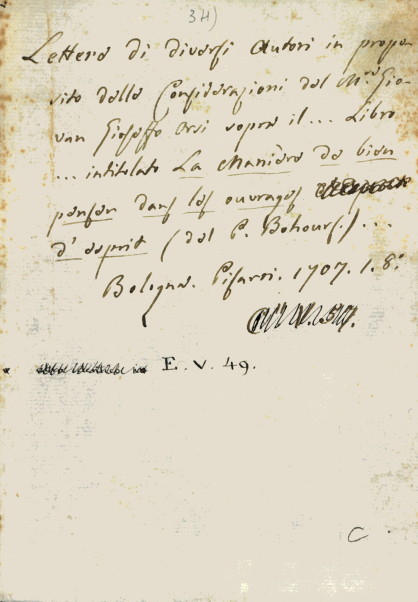 34)
Lettere di diversi Autori in propo-
sito delle Considerazioni del M.se Gio-
van Gioseffo Orsi sopra il ... Libro
... intitolato La Maniere de bien
penser dans les ouvrages
d'esprit (del P. Bohours.) ...
Bologna. Pisarri. 1707. 1. 8.°
E. V. 49.
C